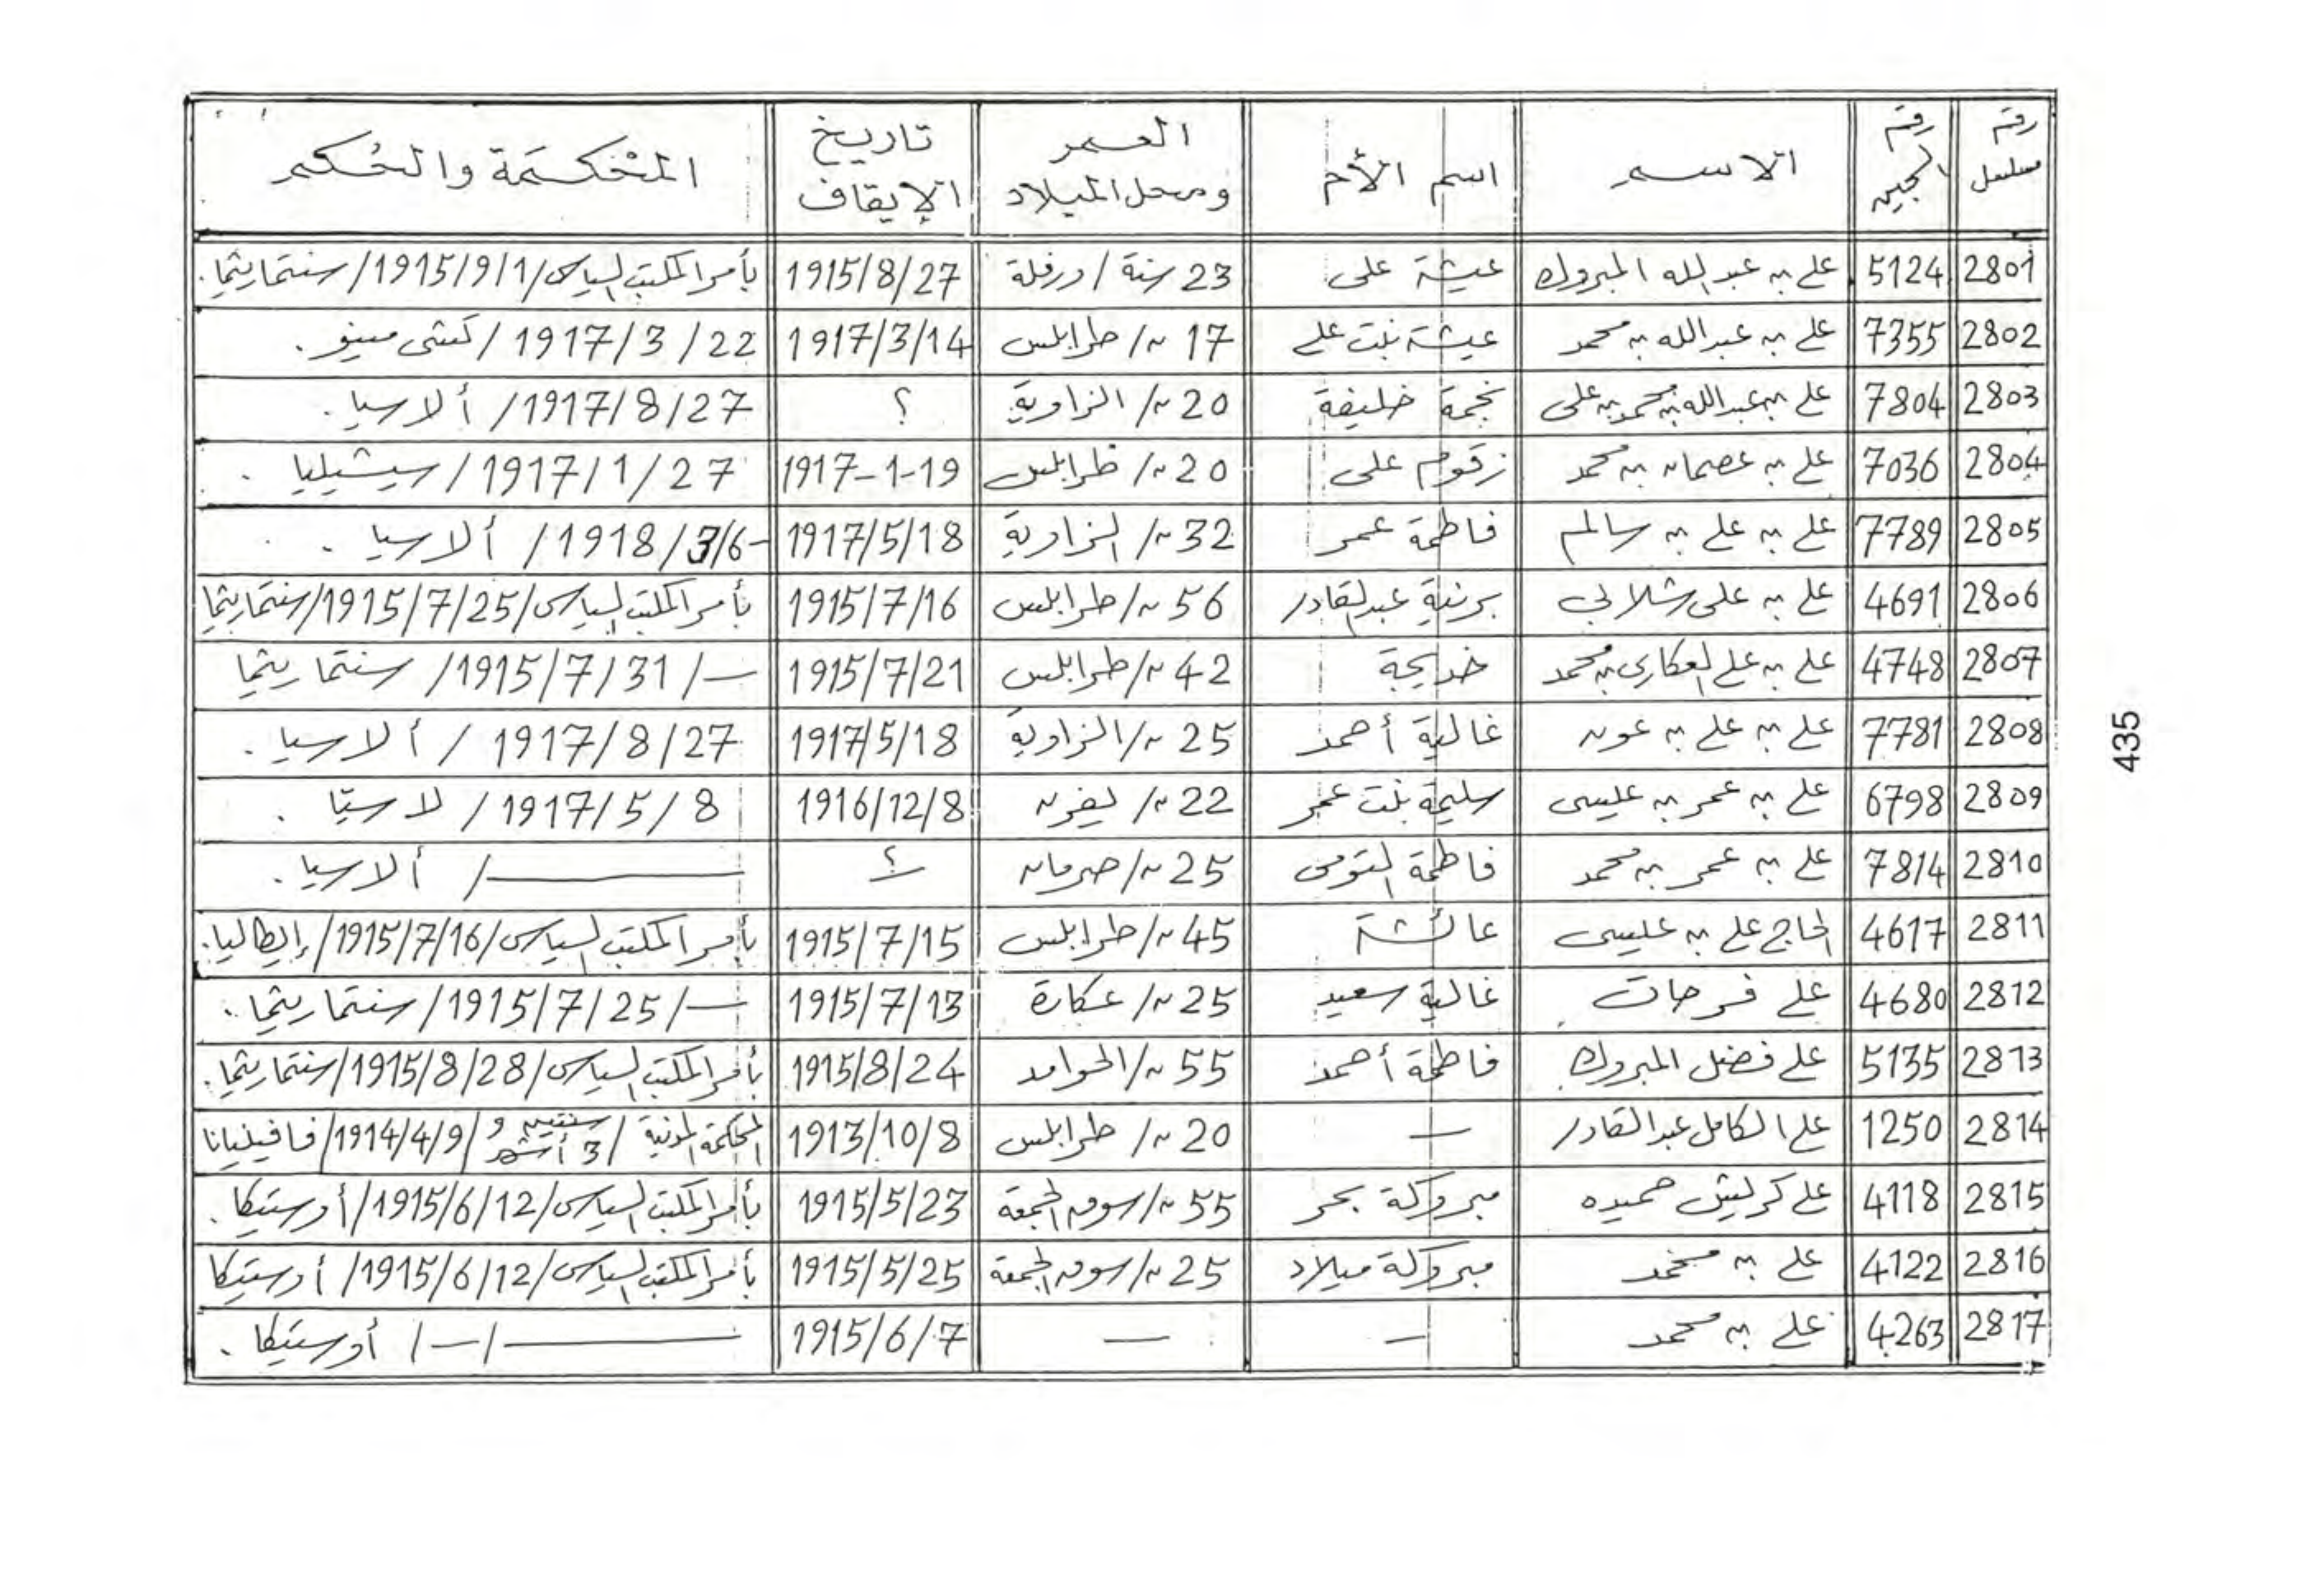 رقم مسلسل | رقم السجين | الاسم | اسم الأم | العمر ومحل الميلاد | تاريخ الإيقاف | المحكمة والحكم
2801 | 5124 | علي بن عبد الله المبروك | عيشة علي | 23 سنة / ورفلة | 1915/8/27 | بأمر المكتب السياسي / 1915/9/1 / سنتماريثما.
2802 | 7355 | علي بن عبد الله بن محمد | عيشة بنت علي | 17 س / طرابلس | 1917/3/14 | 1917/3/22 /
2803 | 7804 | علي بن عبد الله بن محمد بن علي | نجمة خليفة | 20 س / الزاوية | ؟ | 1917/8/27 / ألاسيا.
2804 | 7036 | علي بن عصمان بن محمد | زقوم علي | 20 س / طرابلس | 1917-1-19 | 1917/1/27 / سيشيليا.
2805 | 7789 | علي بن علي بن سالم | فاطمة عمر | 32 س / الزاوية | 1917/5/18 | 1918/3/6 / ألاسيا.
2806 | 4691 | علي بن علي شلابي | برنية عبد القادر | 56 س / طرابلس | 1915/7/16 | بأمر المكتب السياسي / 1915/7/25 / سنتماريثما
2807 | 4748 | علي بن علي العكاري بن محمد | خديجة | 42 س / طرابلس | 1915/7/21 | — / 1915/7/31 / سنتماريثما
2808 | 7781 | علي بن علي بن عون | غالية أحمد | 25 س / الزاوية | 1917/5/18 | 1917/8/27 / ألاسيا.
2809 | 6798 | علي بن عمر بن عيسى | سليمة بنت عمر | 22 س / يفرن | 1916/12/8 | 1917/5/8 / لاسيّا.
2810 | 7814 | علي بن عمر بن محمد | فاطمة التومي | 25 س / صرمان | ؟ | — / ألاسيا.
2811 | 4617 | الحاج علي بن عيسى | عائشة | 45 س / طرابلس | 1915/7/15 | بأمر المكتب السياسي / 1915/7/16 / إيطاليا.
2812 | 4680 | علي فرحات | غالية سعيد | 25 س / عكارة | 1915/7/13 | — / 1915/7/25 / سنتماريثما.
2813 | 5135 | علي فضل المبروك | فاطمة أحمد | 55 س / الحوامد | 1915/8/24 | بأمر المكتب السياسي / 1915/8/28 / سنتماريثما.
2814 | 1250 | علي الكامل عبد القادر | — | 20 س / طرابلس | 1913/10/8 | المحكمة المدنية / سنتين و 3 أشهر / 1914/4/9 / فافينيانا
2815 | 4118 | علي كرليش حميده | مبروكة بحر | 55 س / سوق الجمعة | 1915/5/23 | بأمر المكتب السياسي / 1915/6/12 / أوستيكا.
2816 | 4122 | علي بن محمد | مبروكة ميلاد | 25 س / سوق الجمعة | 1915/5/25 | بأمر المكتب السياسي / 1915/6/12 / أوستيكا
2817 | 4263 | علي بن محمد | — | — | 1915/6/7 | — / — / أوستيكا.
435